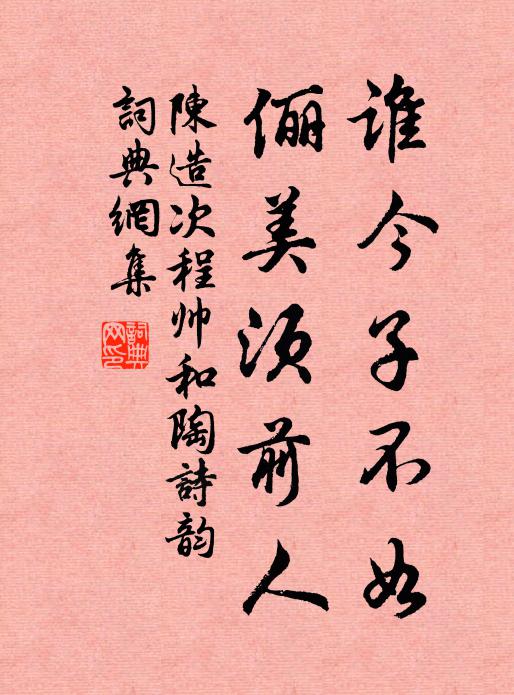 誰今子不如
儷美須前人
陳造次程帅和陶詩韵
詞典網集
詞典网印